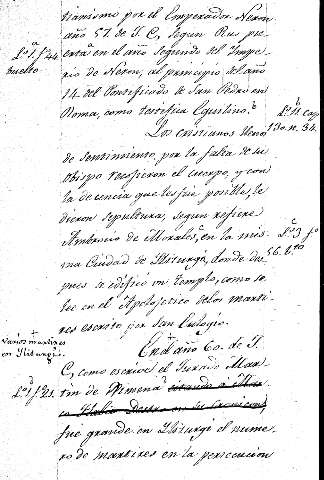 tianismo por el Emperador Neron
año 57. de J. C., segun Rus puerta^a en el año segundo del Imperio de Neron, al principio del año
14. del Pontificado de San Pedro en
Roma, como testifica Equilino.^b
Los cristianos llenos
de sentimiento, por la falta de su
obispo recogieron el cuerpo, y con
la decencia que les fue posible, le
dieron sepultura, segun refiere
Ambrosio de Morales, en la misma Ciudad de Iliturgi, donde despues se edificó un templo, como se
lee en el Apologetico de los martires escrito por San Eulogio.
En el año 60. de J.
C., como escrive el Jurado Martin de Ximena
fue grande en Iliturgi el numero de martires en la persecucion
vuelto
cap.
130. n. 34.
56. b.^to
Varios martires
en Iliturgi.